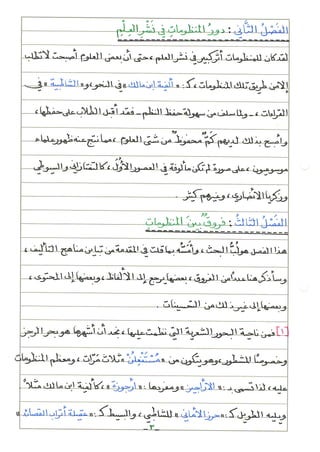 الفَصْلُ الثَّانِي : دورُ المنظوماتِ في نَشْرِ العِلْمِ
لقد كان للمنظومات أثر كبير في نشر العلم ، حتى أن بعض العلوم أصبحت لا تطلب
إلا من طريق تلك المنظومات ، كـ: « ألفية ابن مالك » في النحو ، و « الشاطبية » في
القراءات . ولما سلف من سهولة حفظ النظم - فقد أقبل الطلاب على حفظها ،
وأصبح بذلك لديهم كَمٌّ محفوظٌ من شتى العلوم ، مما نتج عنه ظهور علماء
موسوعيون ، على صورة لم تكن مألوفة في العصور الأُوَل ، كالتفتازاني والسيوطي
وزكريا الأنصاري ، وغيرهم كثير .
الفَصْلُ الثالث : فروقٌ بين المنظومات
هذا الفصل هو لُبُّ البحث ، وأُسُّهُ بما قلت في المقدمة من تباين مناهج التأليف ،
وسأذكر هنا عددًا من الفروق ، بعضها يرجع إلى الألفاظ ، وبعضها إلى المحتوى ،
وبعضها إلى غير ذلك من التقسيمات .
[١] فمن ناحية البحور الشعرية التي نظمت عليها ، نجد أن أشهرها هو بحر الرجز
وخصوصًا المشطور ، وهو يتكون من « مُسْتَفْعِلُنْ » ثلاث مَرَّات ، ومعظم المنظومات
عليه ، لذا تسمى بـ: « الأراجيز » ومفردها : « أرجوزة » ، كألفية ابن مالك مثلاً
ويليه الطويل كـ: « حرز الأماني » للشاطبي ، والبسيط كـ: « عقيلة أتراب القصائد »
- ٣ -